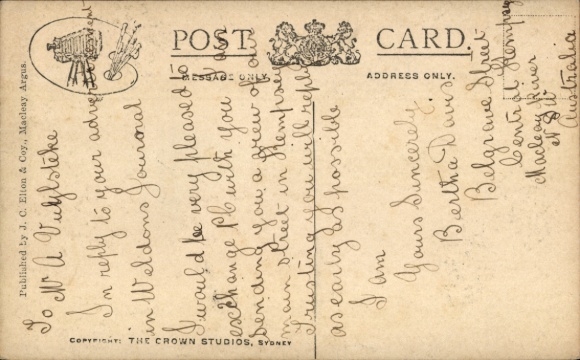 POST CARD.
MESSAGE ONLY.
ADDRESS ONLY.
Published by J. C. Elton & Coy., Macleay Argus.
COPYRIGHT: THE CROWN STUDIOS, SYDNEY
Belgrave Street
Central Kempsey
Macleay River
N S W
Australia
To Mr A Vuylsteke
In reply to your advertisement
in Weldons Journal
I would be very pleased to
exchange PC with you I am
sending you a view of our
main street in Kempsey
Trusting you will reply
as early as possible
I am
Yours Sincerely
Bertha Davis